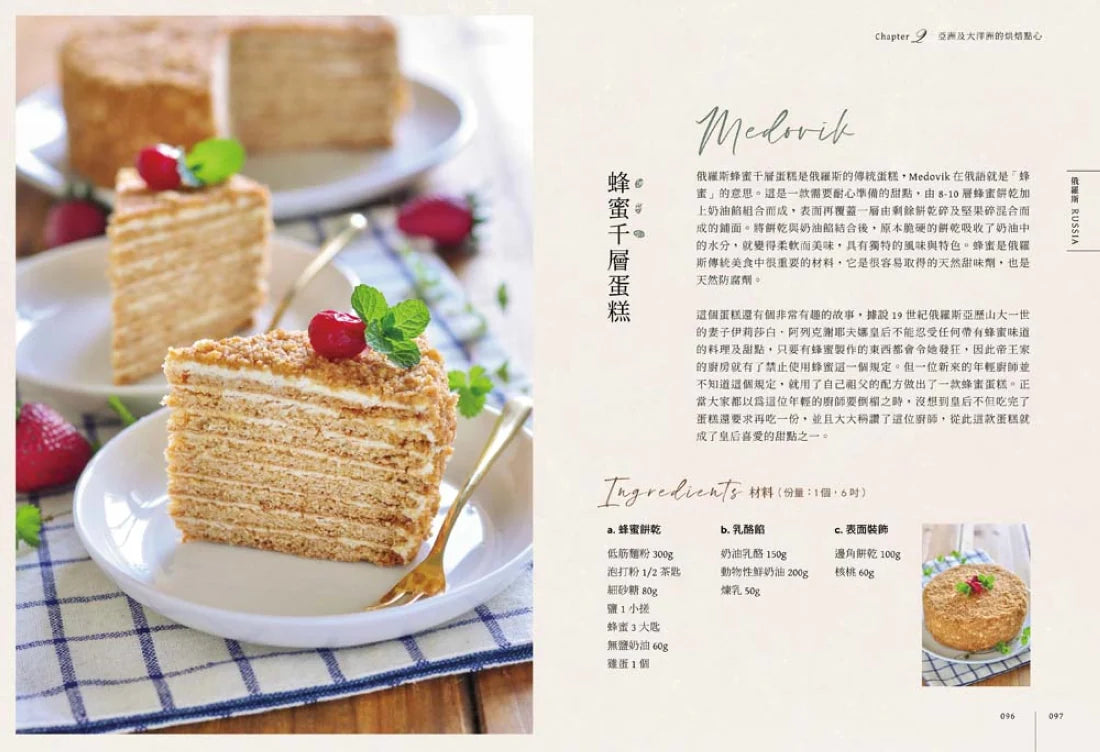 Chapter 2 亞洲及大洋洲的烘焙點心
Medovik
蜂蜜千層蛋糕
俄羅斯 RUSSIA
俄羅斯蜂蜜千層蛋糕是俄羅斯的傳統蛋糕，Medovik 在俄語就是「蜂
蜜」的意思。這是一款需要耐心準備的甜點，由 8-10 層蜂蜜餅乾加
上奶油餡組合而成，表面再覆蓋一層由剩餘餅乾碎及堅果碎混合而
成的鋪面。將餅乾與奶油餡結合後，原本脆硬的餅乾吸收了奶油中
的水分，就變得柔軟而美味，具有獨特的風味與特色。蜂蜜是俄羅
斯傳統美食中很重要的材料，它是很容易取得的天然甜味劑，也是
天然防腐劑。
這個蛋糕還有個非常有趣的故事，據說 19 世紀俄羅斯亞歷山大一世
的妻子伊莉莎白．阿列克謝耶夫娜皇后不能忍受任何帶有蜂蜜味道
的料理及甜點，只要有蜂蜜製作的東西都會令她發狂，因此帝王家
的廚房就有了禁止使用蜂蜜這一個規定。但一位新來的年輕廚師並
不知道這個規定，就用了自己祖父的配方做出了一款蜂蜜蛋糕。正
當大家都以為這位年輕的廚師要倒楣之時，沒想到皇后不但吃完了
蛋糕還要求再吃一份，並且大大稱讚了這位廚師，從此這款蛋糕就
成了皇后喜愛的甜點之一。
Ingredients 材料（份量：1個，6吋）
a. 蜂蜜餅乾
低筋麵粉 300g
泡打粉 1/2 茶匙
細砂糖 80g
鹽 1 小搓
蜂蜜 3 大匙
無鹽奶油 60g
雞蛋 1 個
b. 乳酪餡
奶油乳酪 150g
動物性鮮奶油 200g
煉乳 50g
c. 表面裝飾
邊角餅乾 100g
核桃 60g
096
097